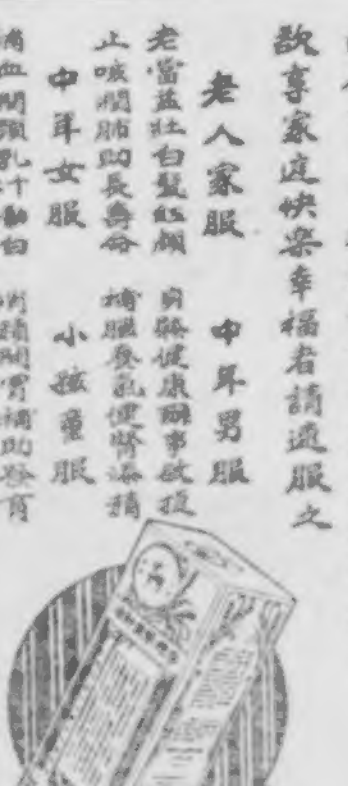 欲享家庭快樂幸福者請速服之
老人家服
老當益壯白髮紅顏
止咳潤肺助長壽命
中年男服
身體健康
補腦養氣健腎添精
中年女服
補血開顏乳汁
小孩童服
開胃補助發育